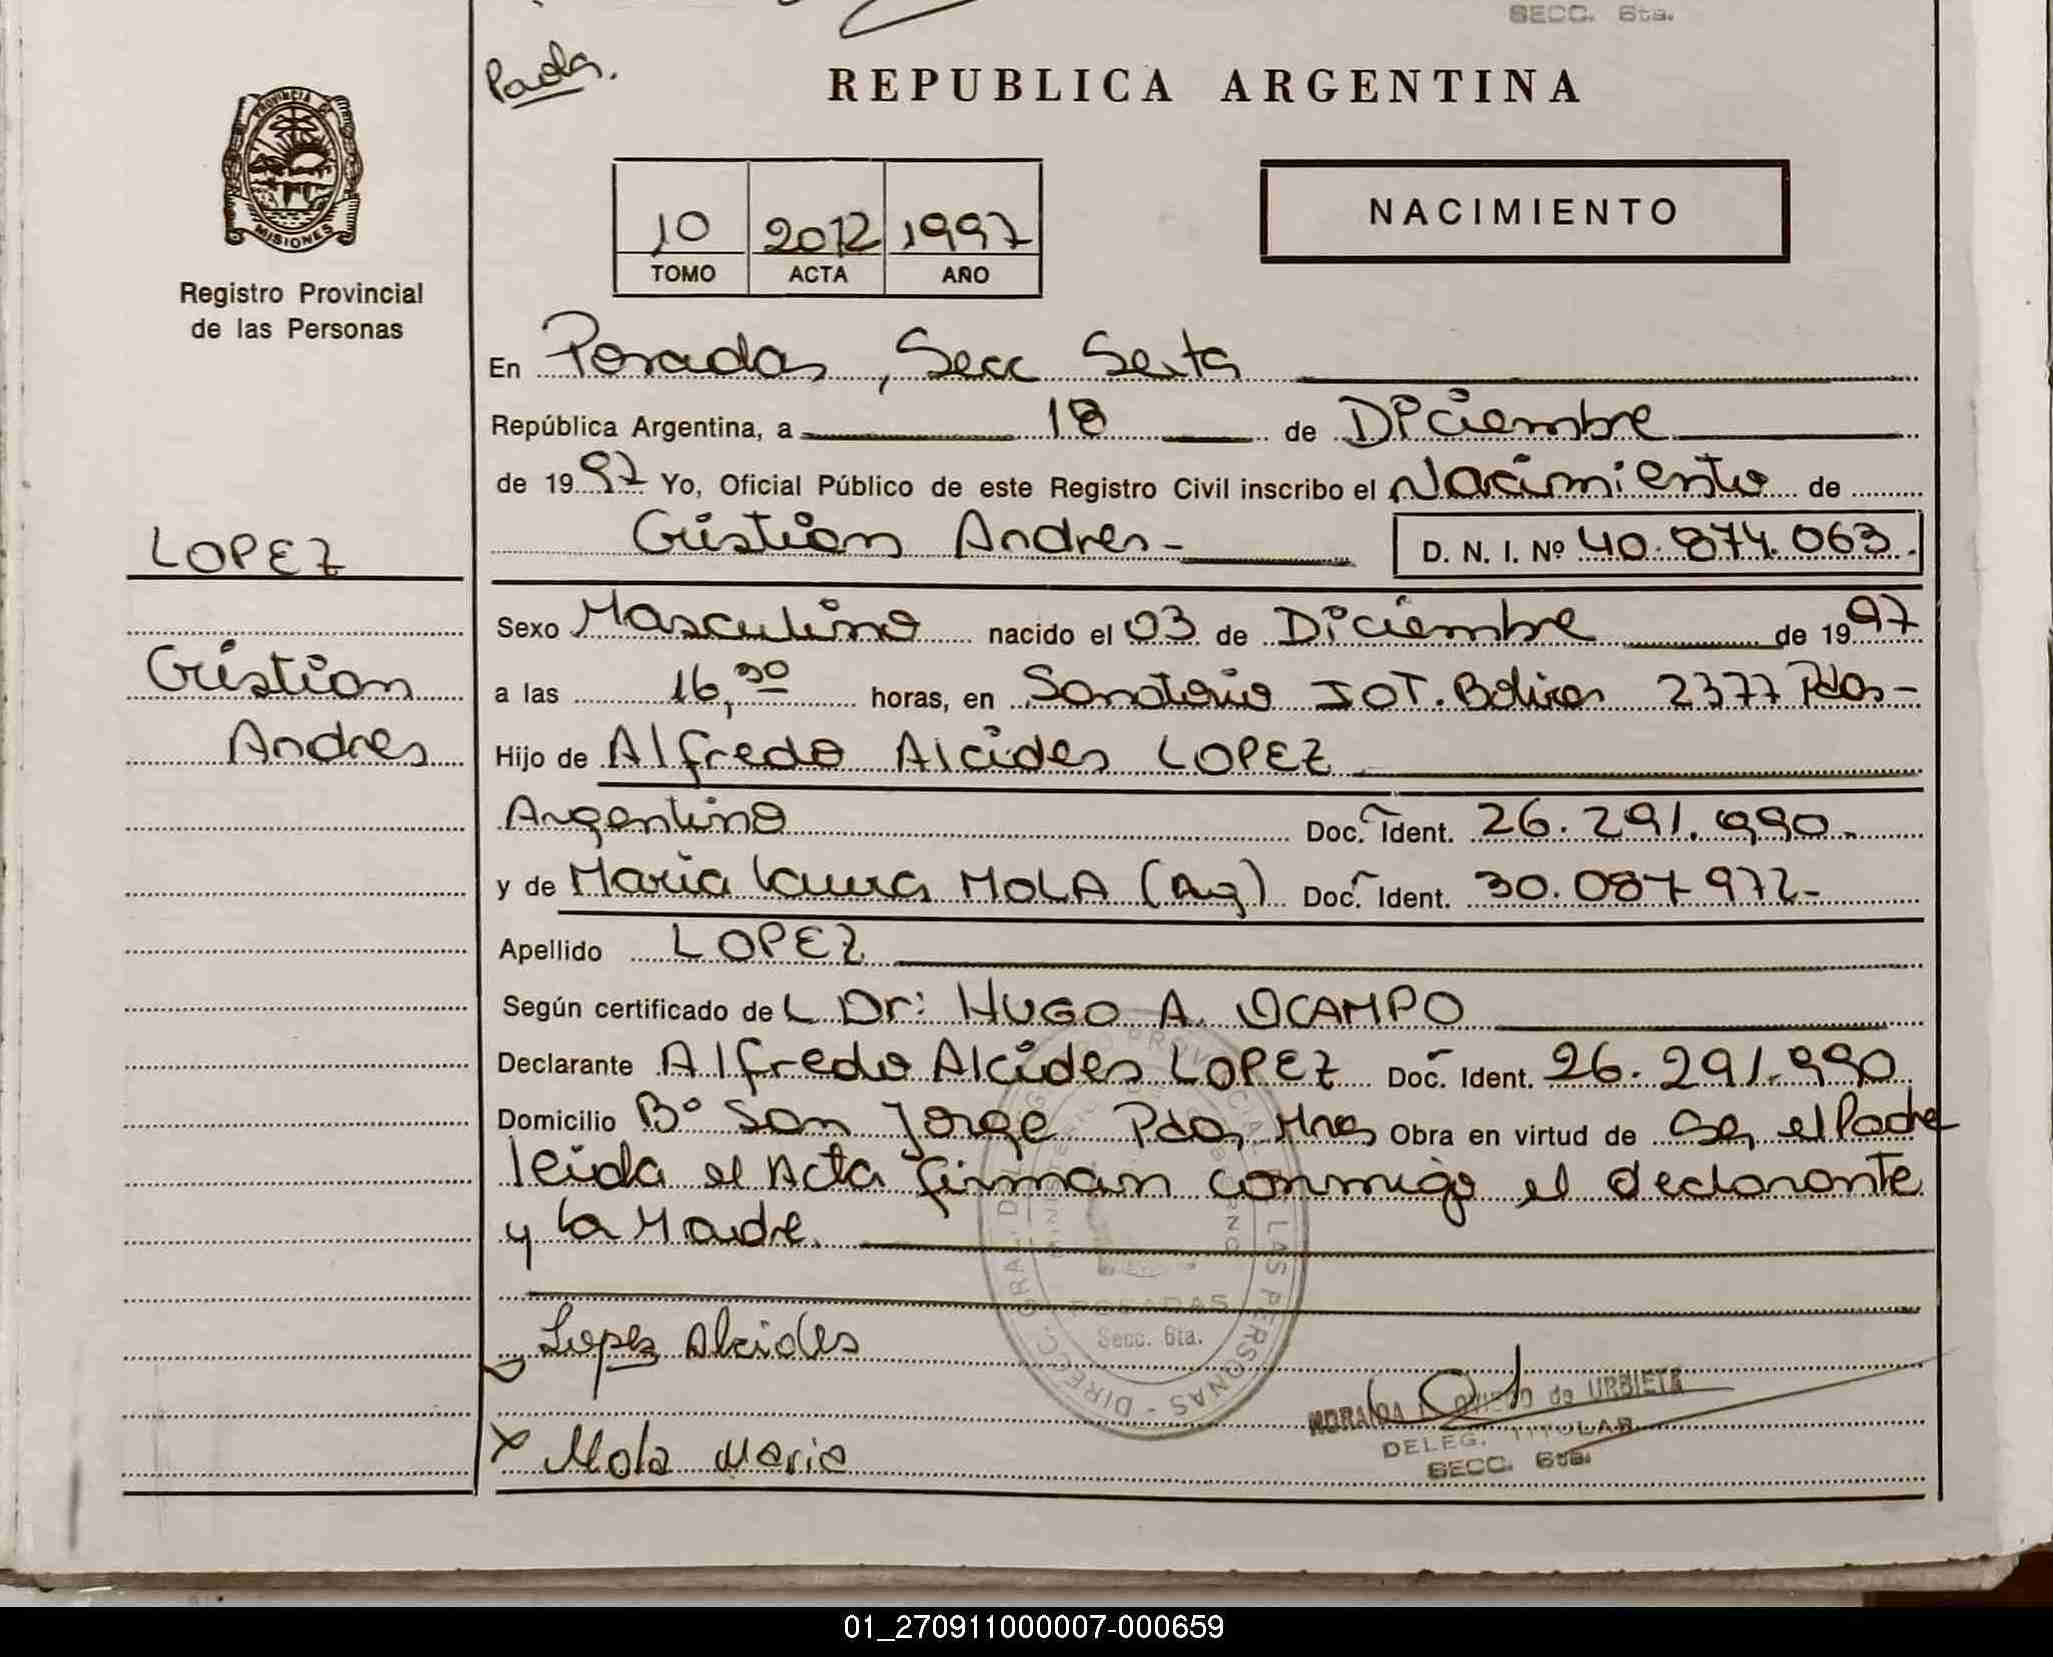 SECC. 6ta.
Paola.
REPUBLICA ARGENTINA
PROVINCIA DE
MISIONES
Registro Provincial
de las Personas
10 2012 1997
TOMO ACTA AÑO
NACIMIENTO
En Posadas, Secc Sexta
República Argentina, a 18 de Diciembre
de 1997 Yo, Oficial Público de este Registro Civil inscribo el Nacimiento de
Cristian Andres - D. N. I. Nº 40.874.063.
LOPEZ
Cristian
Andres
Sexo Masculino nacido el 03 de Diciembre de 1997
a las 16,30 horas, en Sanatorio IOT. Bolivar 2377 Pdas-
Hijo de Alfredo Alcides LOPEZ
Argentino Doc. Ident. 26.291.990.
y de Maria Laura MOLA (arg) Doc. Ident. 30.087 972-
Apellido LOPEZ
Según certificado de L Dr: HUGO A. OCAMPO
Declarante Alfredo Alcides LOPEZ Doc. Ident. 26.291.990
Domicilio Bº San Jorge Pdas, Mnes Obra en virtud de Ser el Padre
leida el Acta firman conmigo el declarante
y la Madre.
Lopez Alcides
POSADAS
Secc. 6ta.
x Mola Maria
OVIEDO de URBIETA
DELEG. TITULAR
SECC. 6ta.
01_270911000007-000659